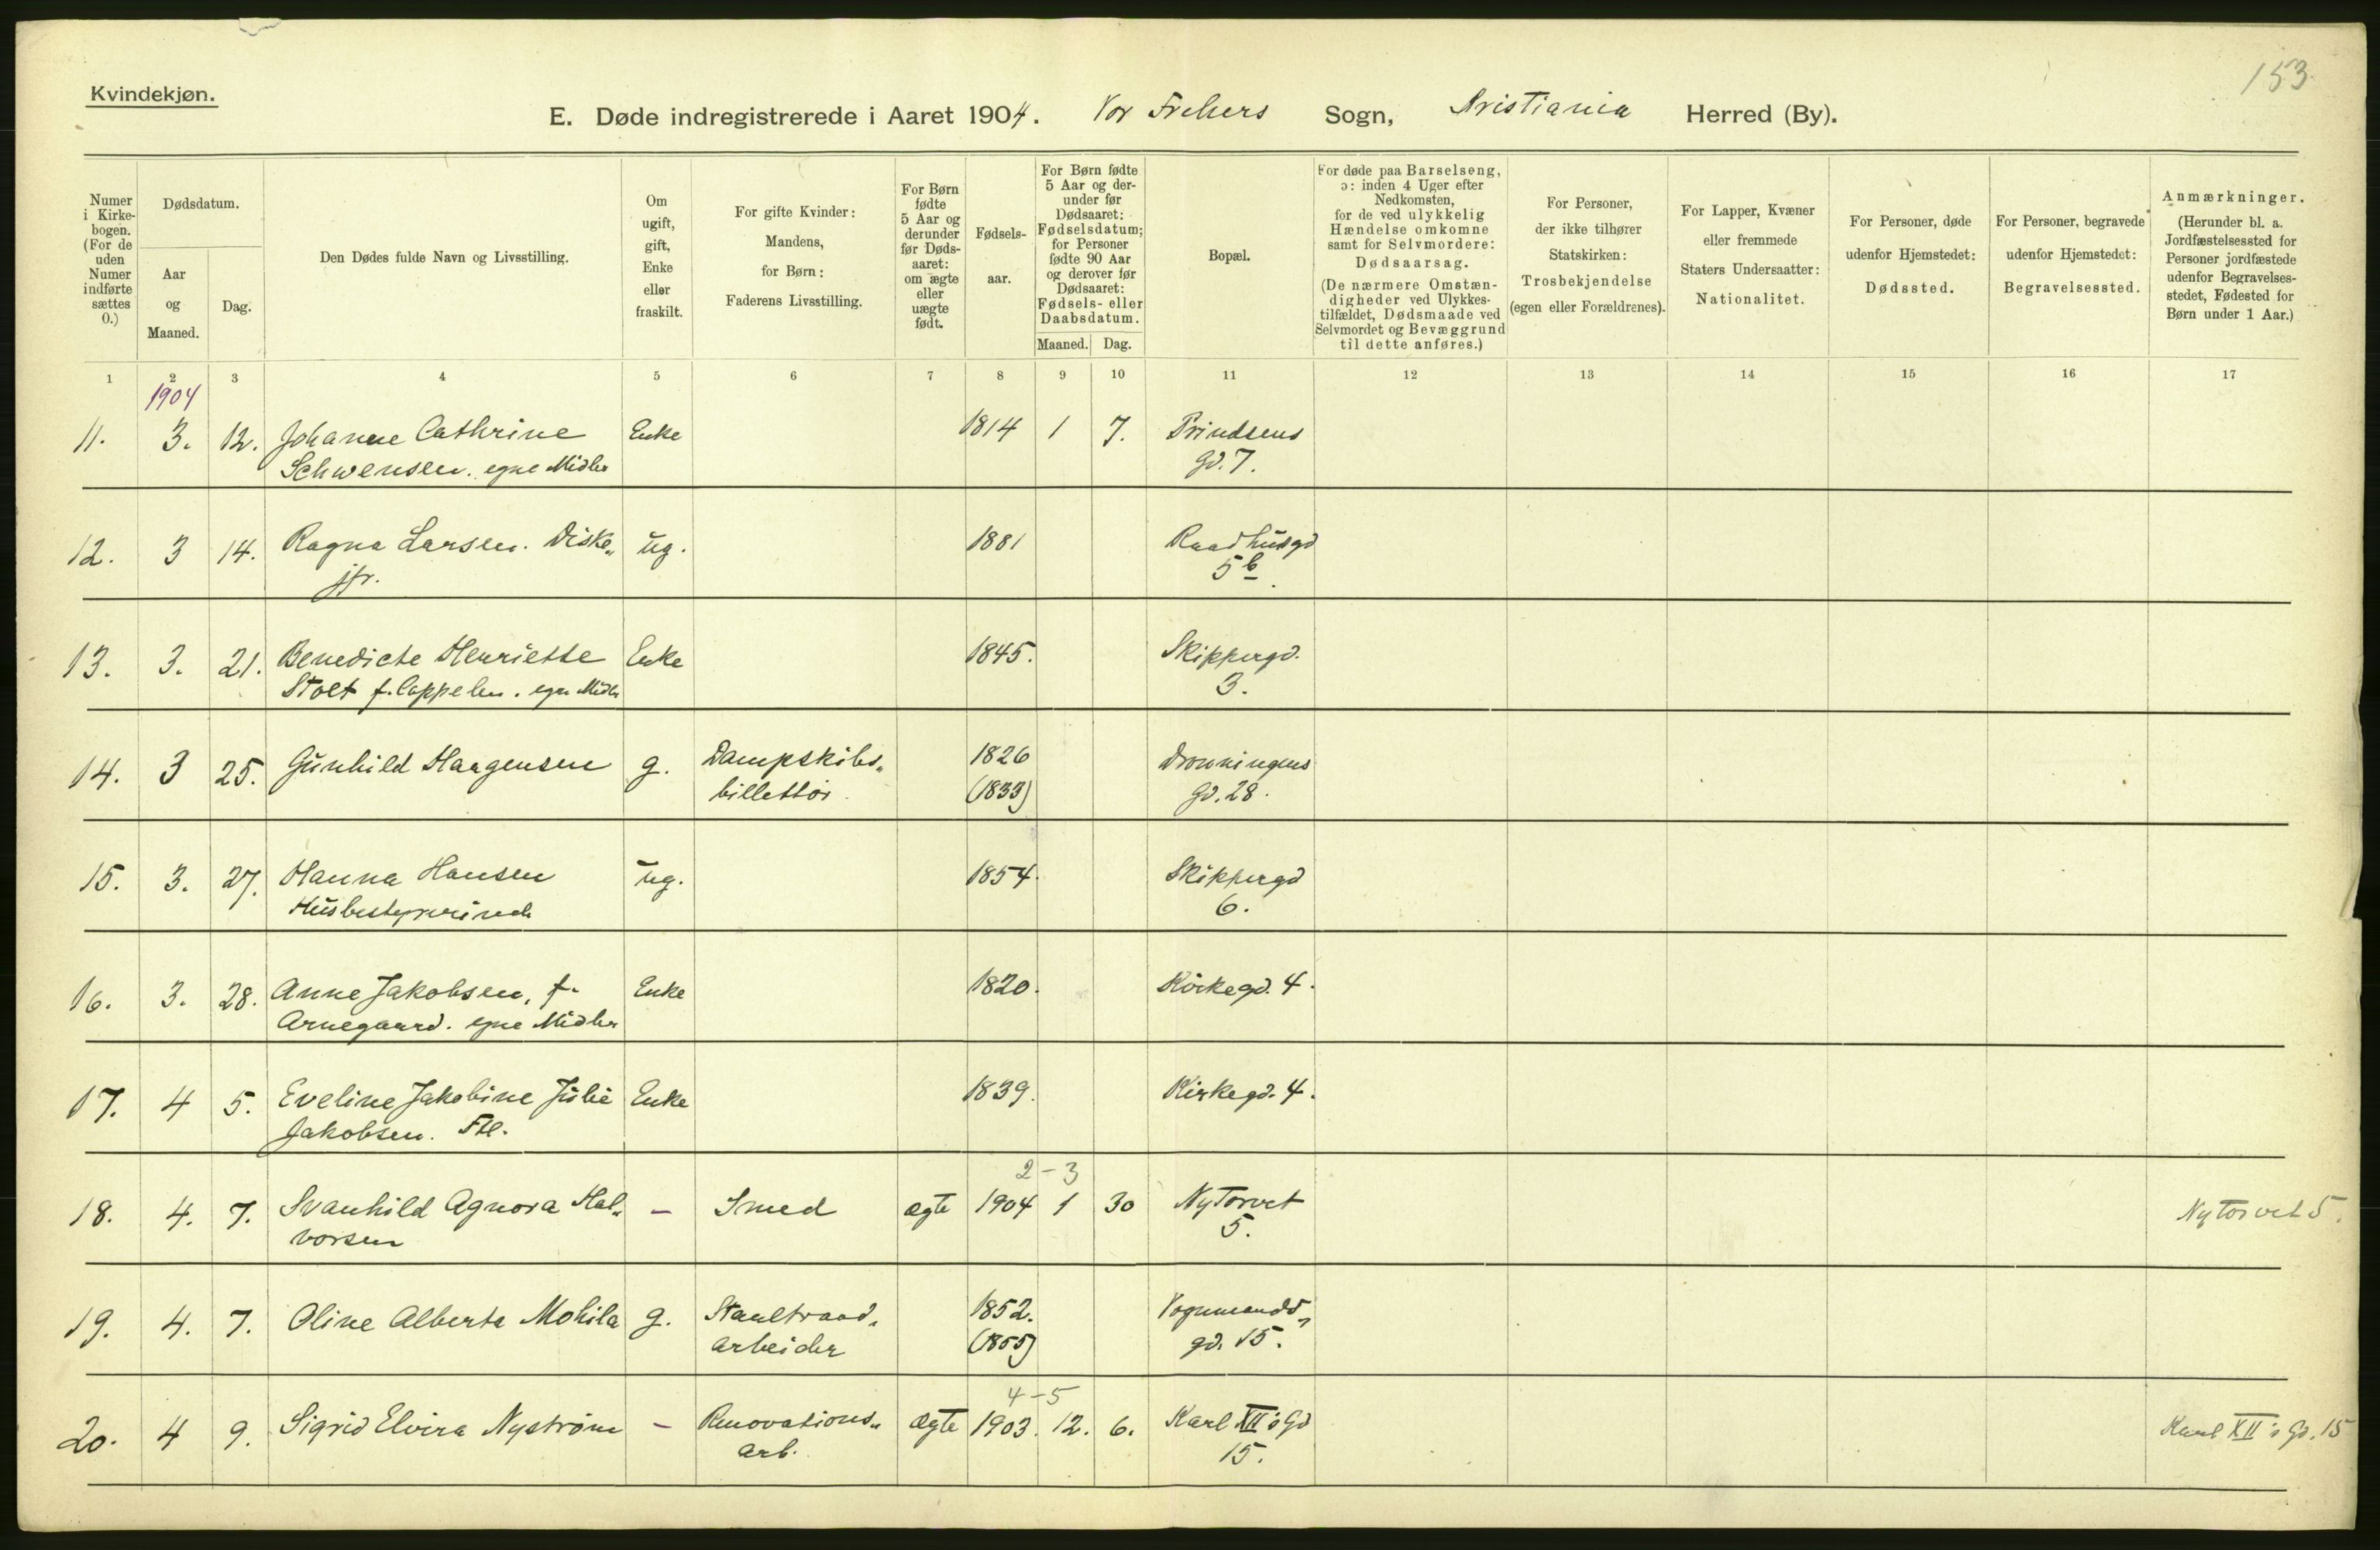 153.
Kvindekjøn.
E. Døde indregistrerede i Aaret 1904. Vor Frelsers Sogn, Kristiania Herred (By).
Numer i Kirke-bogen. (For de uden Numer indførte sættes 0.)
Dødsdatum.
Aar og Maaned.
Dag.
Den Dødes fulde Navn og Livsstilling.
Om ugift, gift, Enke eller fraskilt.
For gifte Kvinder: Mandens, for Børn: Faderens Livsstilling.
For Børn fødte 5 Aar og derunder før Døds-aaret: om ægte eller uægte født.
Fødsels-aar.
For Børn fødte 5 Aar og der-under før Dødsaaret: Fødselsdatum; for Personer fødte 90 Aar og derover før Dødsaaret: Fødsels- eller Daabsdatum.
Maaned. Dag.
Bopæl.
For døde paa Barselseng, ɔ: inden 4 Uger efter Nedkomsten, for de ved ulykkelig Hændelse omkomne samt for Selvmordere: Dødsaarsag. (De nærmere Omstæn-digheder ved Ulykkes-tilfældet, Dødsmaade ved Selvmordet og Bevæggrund til dette anføres.)
For Personer, der ikke tilhører Statskirken: Trosbekjendelse (egen eller Forældrenes).
For Lapper, Kvæner eller fremmede Staters Undersaatter: Nationalitet.
For Personer, døde udenfor Hjemstedet: Dødssted.
For Personer, begravede udenfor Hjemstedet: Begravelsessted.
Anmærkninger. (Herunder bl. a. Jordfæstelsessted for Personer jordfæstede udenfor Begravelses-stedet, Fødested for Børn under 1 Aar.)
1 2 3 4 5 6 7 8 9 10 11 12 13 14 15 16 17
1904
11. 3. 12. Johanne Cathrine Enke 1814 1 7. Prindsens
Schwensen. egne Midler gd. 7.
12. 3 14. Ragna Larsen. Diske„ ug. 1881 Raadhusgd
jfr. 5b.
13. 3. 21. Benedicte Henriette Enke 1845. Skippergd.
Stolt f. Cappelen. egne Midler 3.
14. 3 25. Gunhild Haagensen g. Dampskibs„ 1826 Dronningens
billettør. (1833) Gd. 28.
15. 3. 27. Hanna Hansen ug. 1854. Skippergd
Husbestyrerinde 6.
16. 3. 28. Anne Jakobsen, f. Enke 1820. Kirkegd. 4.
Arnegaard. egne Midler
17. 4 5. Eveline Jakobine Julie Enke 1839. Kirkegd. 4.
Jakobsen.
2-3
18. 4. 7. Svanhild Agnora Hal„ - Smed ægte 1904 1 30 Nytorvet Nytorvet 5.
vorsen 5.
19. 4. 7. Oline Alberta Mohila g. Staaltraad„ 1852. Vognmands„
arbeider (1855) gd. 15.
4-5
20. 4 9. Sigrid Elvira Nystrøm - Renovations„ ægte 1903. 12. 6. Karl XII's Gd Karl XII's Gd. 15
arb. 15.